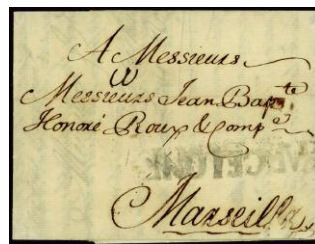 A Messieurs
W
Messieurs Jean Bap.te
Honoré Roux & Comp.e
Marseille